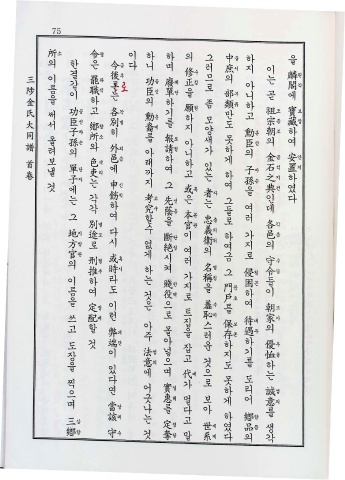 75
을 麟閣에 寶藏하여 安置하였다
이는 곧 祖宗朝의 金石之典인데 各邑의 守令들이 朝家의 優恤하는 誠意를 생각
하지 아니하고 勳臣의 子孫을 여러 가지로 侵困하여 待遇하기를 도리어 鄕品의
中庶의 部類만도 못하게 하여 그들로 하여금 그 門戶를 保存하지도 못하게 하였다
그러므로 좀 모양새가 있는 者는 忠義衛의 名稱을 羞恥스러운 것으로 보아 世系
의 修正을 願하지 아니하고 或은 本官이 여러 가지로 트집을 잡고 代가 멀다고 말
하며 廢單하기를 報請하여 그 先蔭을 斷絶시켜 賤役으로 몰아넣으며 實惠를 定奪
하니 功臣의 勳裔를 아래까지 考究할 수 없게 하는 것은 아주 法意에 어긋나는 것
이다
今後로은 各別히 外邑에 申飭하여 다시 或時라도 이런 弊端이 있다면 當該 守
令은 罷職하고 鄕所의 色吏는 각각 別途로 刑推하여 定配할 것
한결같이 功臣子孫의 單子에는 그 地方官의 이름을 쓰고 도장을 찍으며 三鄕
所의 이름을 써서 올려보낼 것
三陟金氏大同譜 首卷